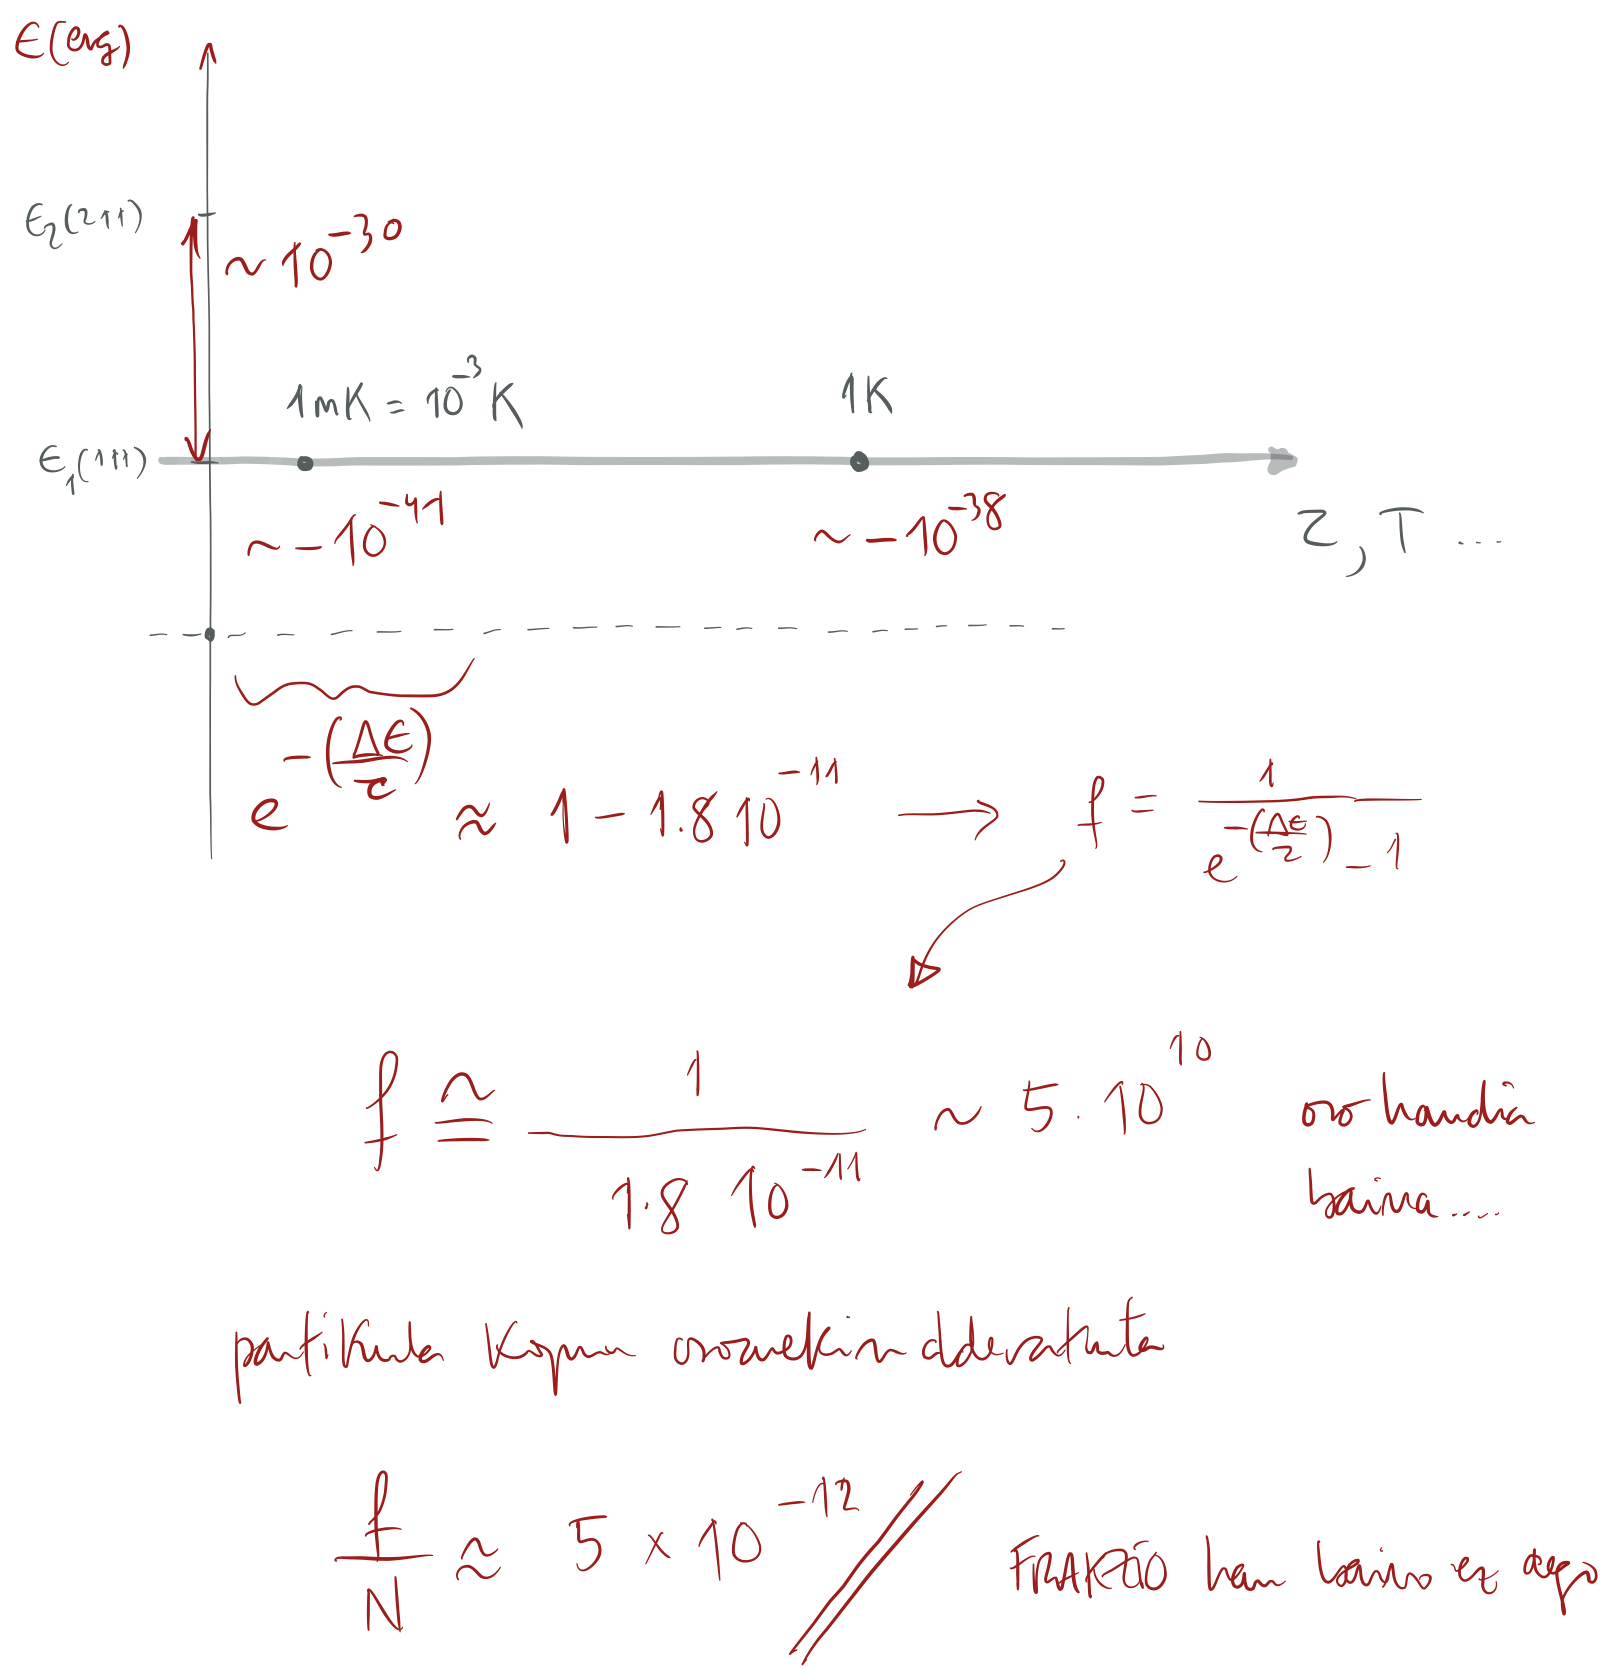 ϵ(erg)
ϵ₂(211)
~ 10⁻³⁰
1mK = 10⁻³ K
1K
ϵ₁(111)
~ -10⁻⁴¹
~ -10⁻³⁸
τ, T ...
e^-(Δϵ/τ) ≈ 1 - 1.8 10⁻¹¹ → f = 1/(e^-(Δϵ/τ) - 1)
f ≅ 1/(1.8 10⁻¹¹) ~ 5 · 10¹⁰ oso handia
baina ....
partikula kopuru osoarekin alderatuta
f/N ≈ 5 × 10⁻¹² // FRAKZIO hau baino ez dago